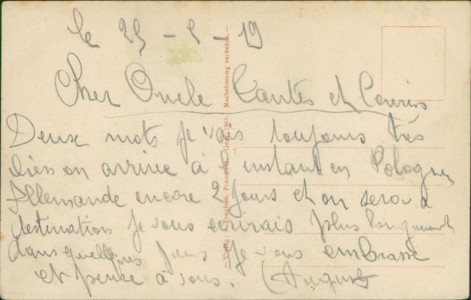 le 25 - 2 - 19
Cher Oncle Tantes et Cousins
Deux mots je vais toujours très
bien on arrive à l'instant en Pologne
Allemande encore 2 jours et on sera à
destination je vous ecrirais plus longuement
dans quelques jours je vous embrasse
et pense à vous. August
Nachahmung verboten.